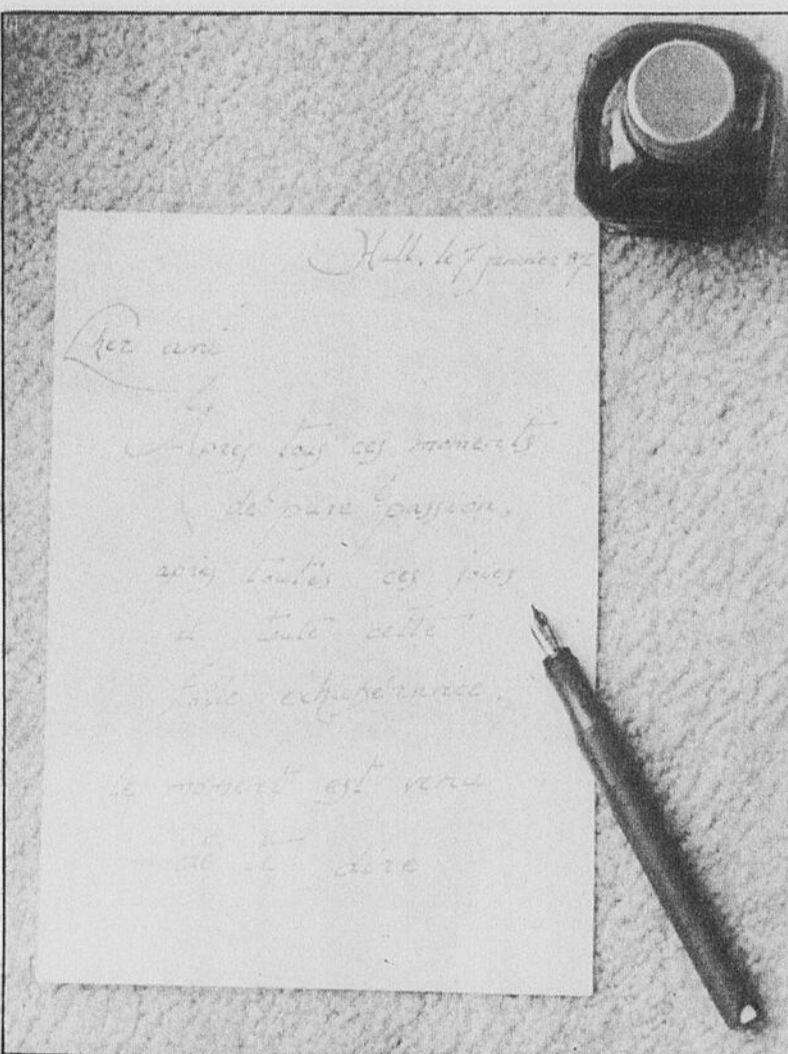 Hull, le 7 janvier 87
Cher ami
Après tous ces moments
de pure passion,
après toutes ces joies
et toute cette
folle exhubérance,
le moment est venu
de te dire